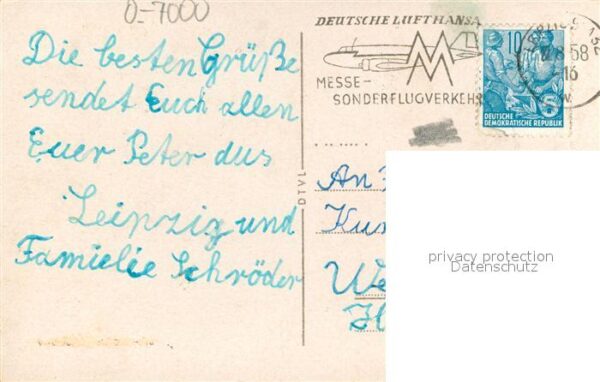 0-7000
Die besten Grüße
sendet Euch allen
Euer Peter aus
Leipzig und
Familie Schröder
DEUTSCHE LUFTHANSA
MESSE-
SONDERFLUGVERKEHR
MM
10
DEUTSCHE
DEMOKRATISCHE REPUBLIK
5
58
-16
DTVL
An
privacy protection
Datenschutz